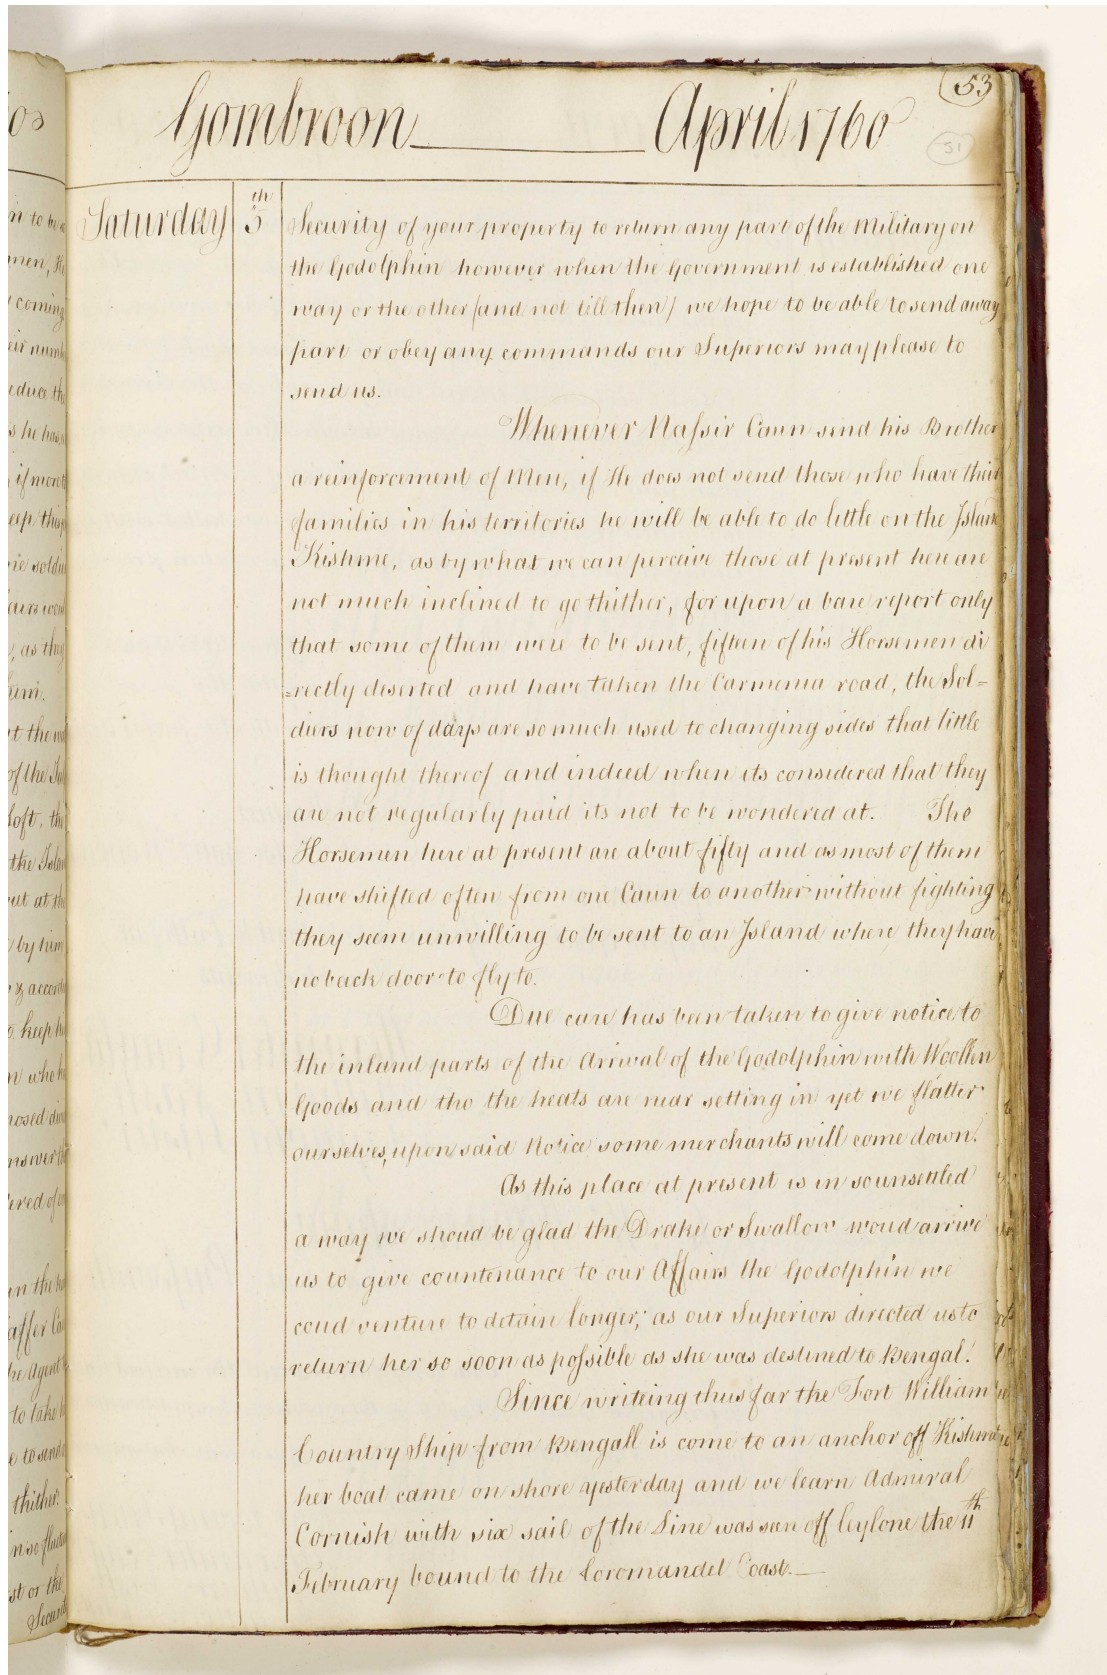 53
Gombroon April 1760
51
Saturday 5th Security of your property to return any part of the Military on
the Godolphin however when the Government is established one
way or the other (and not till then) we hope to be able to send away
part or obey any commands our Superiors may please to
send us.
Whenever Nassir Caun send his Brother
a reinforcement of Men, if He does not send those who have their
families in his territories he will be able to do little on the Island
Kishme, as by what we can perceive those at present here are
not much inclined to go thither, for upon a bare report only
that some of them were to be sent, fifteen of his Horsemen di
=rectly deserted and have taken the Carmenia road, the Sol=
diers now of days are so much used to changing sides that little
is thought thereof and indeed when its considered that they
are not regularly paid its not to be wondered at. The
Horsemen here at present are about fifty and as most of them
have shifted often from one Caun to another without fighting
they seem unwilling to be sent to an Island where they have
no back door to fly to.
Due care has been taken to give notice to
the inland parts of the Arrival of the Godolphin with Woollen
Goods and tho the heats are near setting in yet we flatter
ourselves, upon said Notice some merchants will come down.
As this place at present is in so unsettled
a way we shoud be glad the Drake or Swallow woud arrive
us to give countenance to our Affairs the Godolphin we
coud venture to detain longer; as our Superiors directed us to
return her so soon as possible as she was destined to Bengal.
Since writeing thus far the Fort William
Country Ship from Bengall is come to an anchor off Kishme
her boat came on shore yesterday and we learn Admiral
Cornish with six sail of the Line was seen off Ceylone the 11th
February bound to the Coromandel Coast.